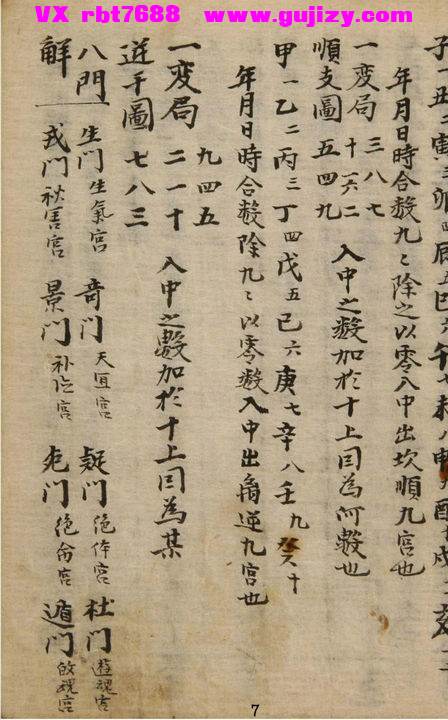 VX rbt7688 www.gujizy.com
子一丑二寅三卯四辰五巳六午七未八申九酉十戌
年月日時合数九々除之以零入中出坎順九宮也
一变局 三八七
順支圖 十六二 五四九 入中之数加於十上因為何数也
甲一乙二丙三丁四戊五己六庚七辛八壬九癸十
年月日時合数除九々以零数入中出离逆九宮也
一变局 九四五
逆干圖 二一十 七八三 入中之數加於十上因為某
八門 生門生氣宮 竒門 疑門 絶体宮 杜門 遊魂宮
觧 門 景門 門 絶命宮 遁門
7